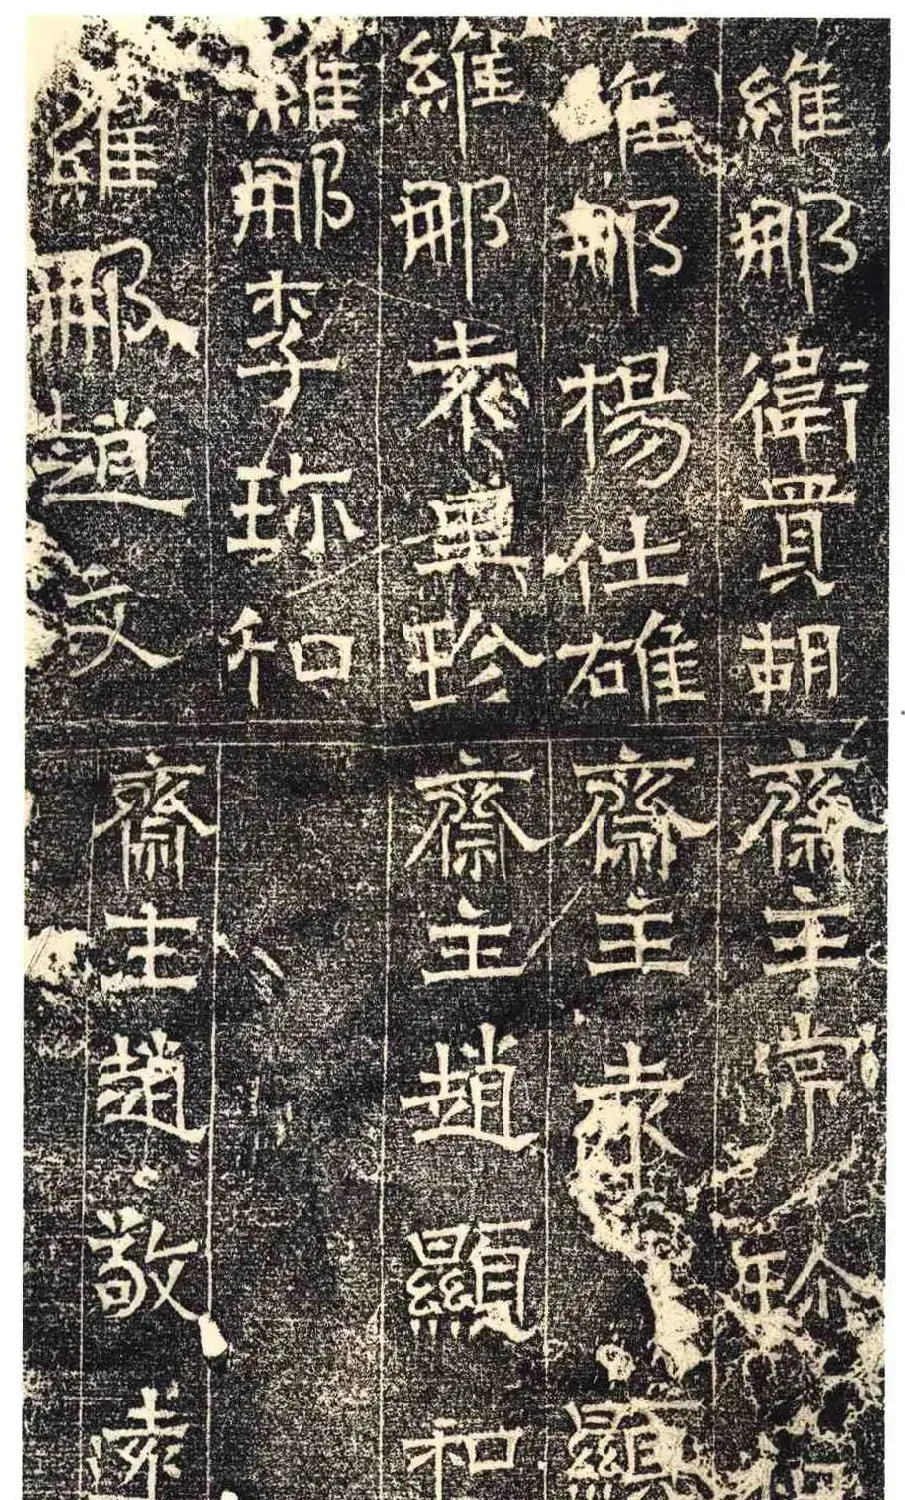 維那衛貫胡
維那楊仕雄
維那袁異珍
維那李珎和
維那趙文
齋主常
齋主袁顯
齋主趙顯和
齋主趙敬